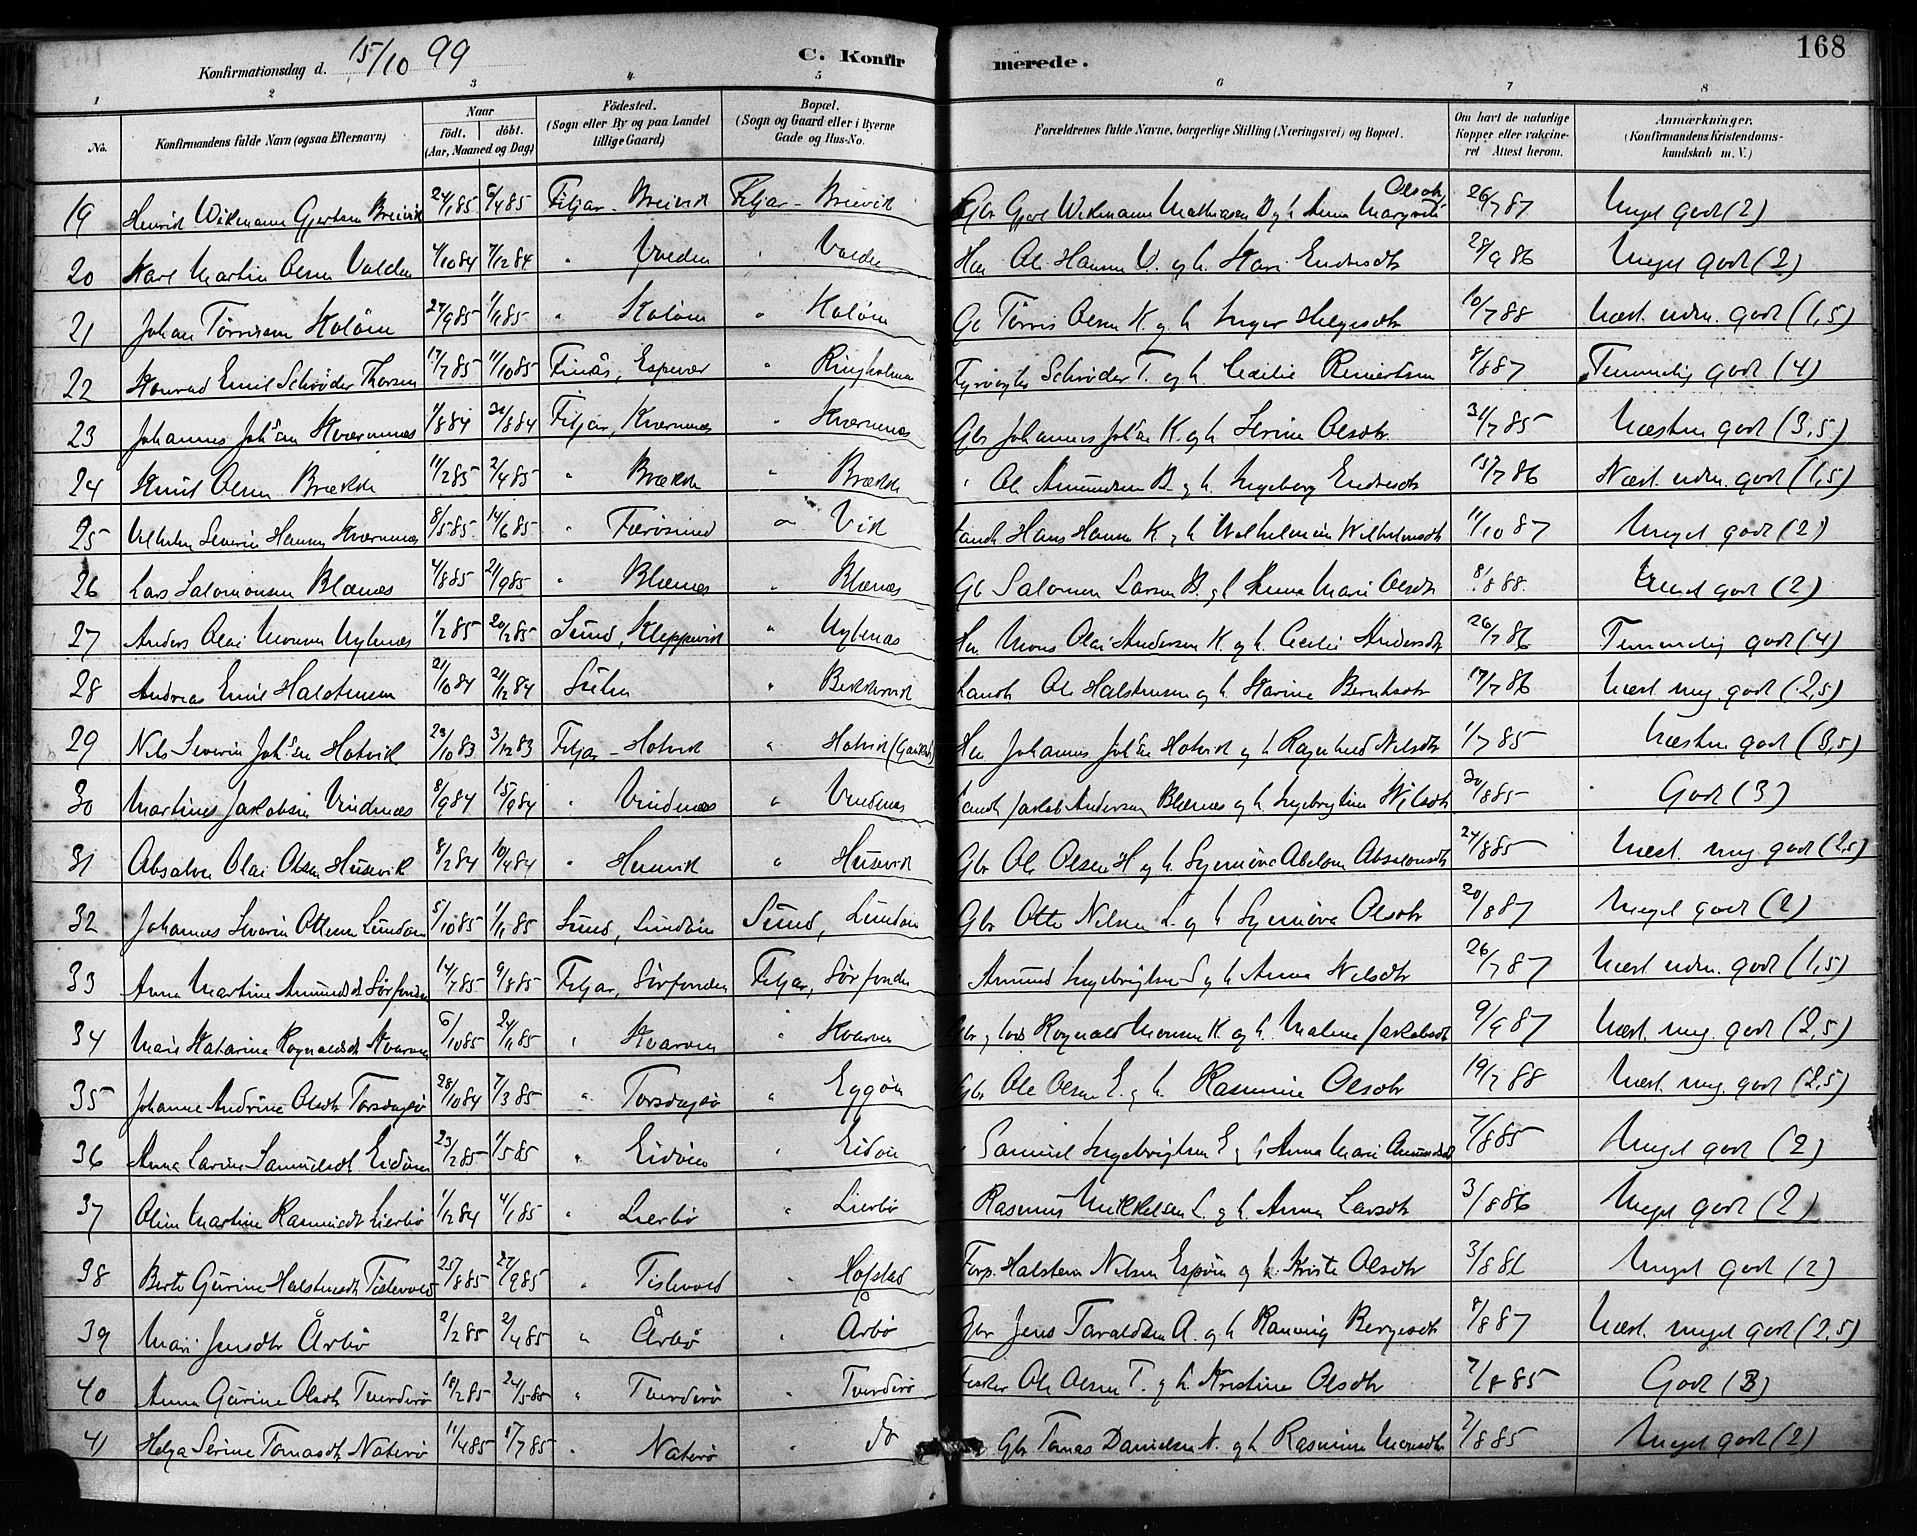 168
Konfirmationsdag d. 15/10 99 C. Konfirmerede.
1 2 3 4 5 6 7 8
No. Konfirmandens fulde Navn (ogsaa Efternavn) Naar födt. döbt. (Aar, Maaned og Dag) Födested. (Sogn eller By og paa Landet tillige Gaard) Bopæl. (Sogn og Gaard eller i Byerne Gade og Hus-No. Forældrenes fulde Navne, borgerlige Stilling (Næringsvei) og Bopæl. Om havt de naturlige Kopper eller vakcineret Attest herom. Anmærkninger. (Konfirmandens Kristendomskundskab m. V.)
19 Henrik Wikmann Gjertsen Breivik 24/1 85 6/4 85 Fitjar - Breivik Fitjar - Breivik Gbr Gjert Wikmann Mathiasen B og h. Anna Margrete Olsdtr 26/7 87 Meget godt (2)
20 Karl Martin Olsen Valden 4/10 84 7/12 84 " Valden " Valden Ole Hansen V. og h. Kari Endresdtr 28/9 86 Meget godt (2)
21 Johan Tørrissen Koløen 27/9 85 1/11 85 " Koløen " Koløen Gb Tørris Olsen K. og h. Inger Helgesdtr 10/7 88 Næst. udm. godt (1,5)
22 Konrad Emil Schrøder Thorsen 17/7 85 11/10 85 Finås, Espevær " Ringholmen Fyrvogter Schrøder T. og h. Cecilie Reinertsen 8/8 87 Temmelig godt (4)
23 Johannes Joh's'en Kværnenæs 1/8 84 31/8 84 Fitjar, Kværnenæs " Kværnenæs Gbr Johannes Joh's'en K. og h. Serine Olsdtr. 31/7 85 Næsten godt (3,5)
24 Knut Olsen Brække 11/2 85 2/4 85 " Brække " Brække " Ole Amundsen B. og h. Ingeborg Endresdtr 15/7 86 Næst. udm. godt (1,5)
25 Severin Hansen Kværnenæs 8/5 85 14/6 85 " Færøsund " Vik Hans Hansen K. og h. Wilhelmine Wilhelmsdtr 11/10 87 Meget godt (2)
26 Lars Salomonsen Blænæs 4/8 85 2/9 85 " Blænæs " Blænæs Gb Salomon Larsen B. og h. Anna Marie Olsdtr 8/8 88 Meget godt (2)
27 Anders Olai Monsen 1/2 85 20/2 85 Sund, Kleppevik " Mons Olai Andersen K. og h. Cecilie Andersdtr 26/7 86 Temmelig godt (4)
28 Andreas Emil Halstensen 21/10 84 21/12 84 " Bekkarvik Ole Halstensen og h. Karine Berntsdtr 17/7 86 Næst. meg. godt (2,5)
29 Nils Severin Joh's'en Hotvik 23/10 83 3/12 83 Fitjar - Hotvik " Hotvik Johannes Joh's'en Hotvik og h. Ragnhild Nilsdtr 1/7 85 Næsten godt (3,5)
30 Martinus Jakobsen Vindenæs 8/9 84 15/9 84 " Vindenæs " Vindenæs Jakob Andersen Blænæs og h. Ingebrigtine Nilsdtr 30/8 85 Godt (3)
31 Absalon Olai Olsen Husevik 8/2 84 10/4 84 " Husevik " Husevik Gbr Ole Olsen H og h. Synnøva Abelone Absalonsdtr 24/8 85 Næst. meg. godt (2,5)
32 Johannes Severin Ottesen Lundøen 5/10 85 1/11 85 Sund, Lundøen Sund, Lundøen Gbr Otto Nilsen L. og h. Synnøva Olsdtr 20/8 87 Meget godt (2)
33 Anna Martine Amundsdt Sørfonden 14/7 85 9/8 85 Fitjar, Sørfonden Fitjar, Sørfonden Amund Ingebrigtsen S og h. Anna Nilsdtr 26/7 87 Næst udm. godt (1,5)
34 Marie Katarina Rognaldsdt Kvarven 6/10 85 24/11 85 " Kvarven " Kvarven Gbr og Rognald Monsen K. og h. Malena Jakobsdt 9/9 87 Næst. meg. godt (2,5)
35 Johanne Andrine Olsdtr Torsdagsø 28/10 84 7/3 85 " Torsdagsø " Eggøen Gbr Ole Olsen E. og h. Rasmine Olsdtr 19/7 88 Næst. meg. godt (2,5)
36 Anna Larine Samuelsdt Eidøen 23/2 85 1/5 85 " Eidøen " Eidøen " Samuel Ingebrigtsen E og h. Anna Marie Amundsdt 7/8 85 Meget godt (2)
37 Oline Martine Rasmusdt Lierbø 1/12 84 4/1 85 " Lierbø " Lierbø Rasmus Mikkelsen L. og h. Anna Larsdtr 3/8 86 Meget godt (2)
38 Berte Gurine Halstensdt Tislevold 25/8 85 27/9 85 " Tislevold " Hofstad Forp. Halsten Nilsen Espøen og h. Kriste Olsdtr 3/8 86 Meget godt (2)
39 Mari Jensdtr Årbø 2/2 85 2/4 85 " Årbø " Arbø Gbr Jens Taraldsen A. og h. Ranveig Børgesdtr 8/8 87 Næst. meget godt (2,5)
40 Anna Gurine Olsdtr Tverderø 18/2 85 24/5 85 " Tverderø " Tverderø Fisker Ole Olsen T. og h. Kristine Olsdtr 7/8 85 Godt (3)
41 Helga Serine Tomasdtr Naterø 11/4 85 5/7 85 " Naterø " do Gbr Tomas Danielsen N. og h. Rasmine Monsdtr 7/8 85 Meget godt (2)